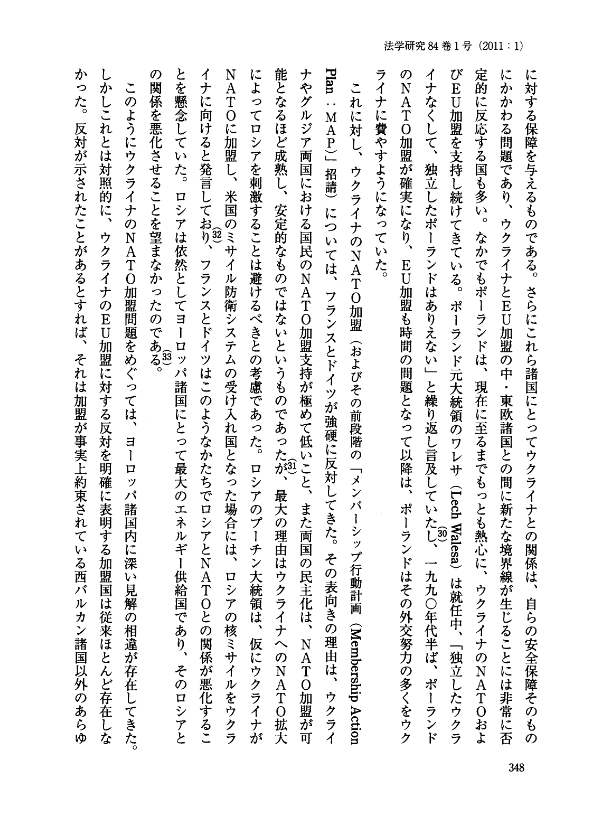 法学研究 84 巻 1 号（2011：1）
に対する保障を与えるものである。さらにこれら諸国にとってウクライナとの関係は、自らの安全保障そのもの
にかかわる問題であり、ウクライナとEU加盟の中・東欧諸国との間に新たな境界線が生じることには非常に否
定的に反応する国も多い。なかでもポーランドは、現在に至るまでもっとも熱心に、ウクライナのNATOおよ
びEU加盟を支持し続けてきている。ポーランド元大統領のワレサ（Lech Walesa）は就任中、「独立したウクラ
イナなくして、独立したポーランドはありえない」と繰り返し言及していたし、(30)一九九〇年代半ば、ポーランド
のNATO加盟が確実になり、EU加盟も時間の問題となって以降は、ポーランドはその外交努力の多くをウク
ライナに費やすようになっていた。
これに対し、ウクライナのNATO加盟（およびその前段階の「メンバーシップ行動計画（Membership Action
Plan：MAP）」招請）については、フランスとドイツが強硬に反対してきた。その表向きの理由は、ウクライ
ナやグルジア両国における国民のNATO加盟支持が極めて低いこと、また両国の民主化は、NATO加盟が可
能となるほど成熟し、安定的なものではないというものであったが、(31)最大の理由はウクライナへのNATO拡大
によってロシアを刺激することは避けるべきとの考慮であった。ロシアのプーチン大統領は、仮にウクライナが
NATOに加盟し、米国のミサイル防衛システムの受け入れ国となった場合には、ロシアの核ミサイルをウクラ
イナに向けると発言しており、(32)フランスとドイツはこのようなかたちでロシアとNATOとの関係が悪化するこ
とを懸念していた。ロシアは依然としてヨーロッパ諸国にとって最大のエネルギー供給国であり、そのロシアと
の関係を悪化させることを望まなかったのである。(33)
このようにウクライナのNATO加盟問題をめぐっては、ヨーロッパ諸国内に深い見解の相違が存在してきた。
しかしこれとは対照的に、ウクライナのEU加盟に対する反対を明確に表明する加盟国は従来ほとんど存在しな
かった。反対が示されたことがあるとすれば、それは加盟が事実上約束されている西バルカン諸国以外のあらゆ
348